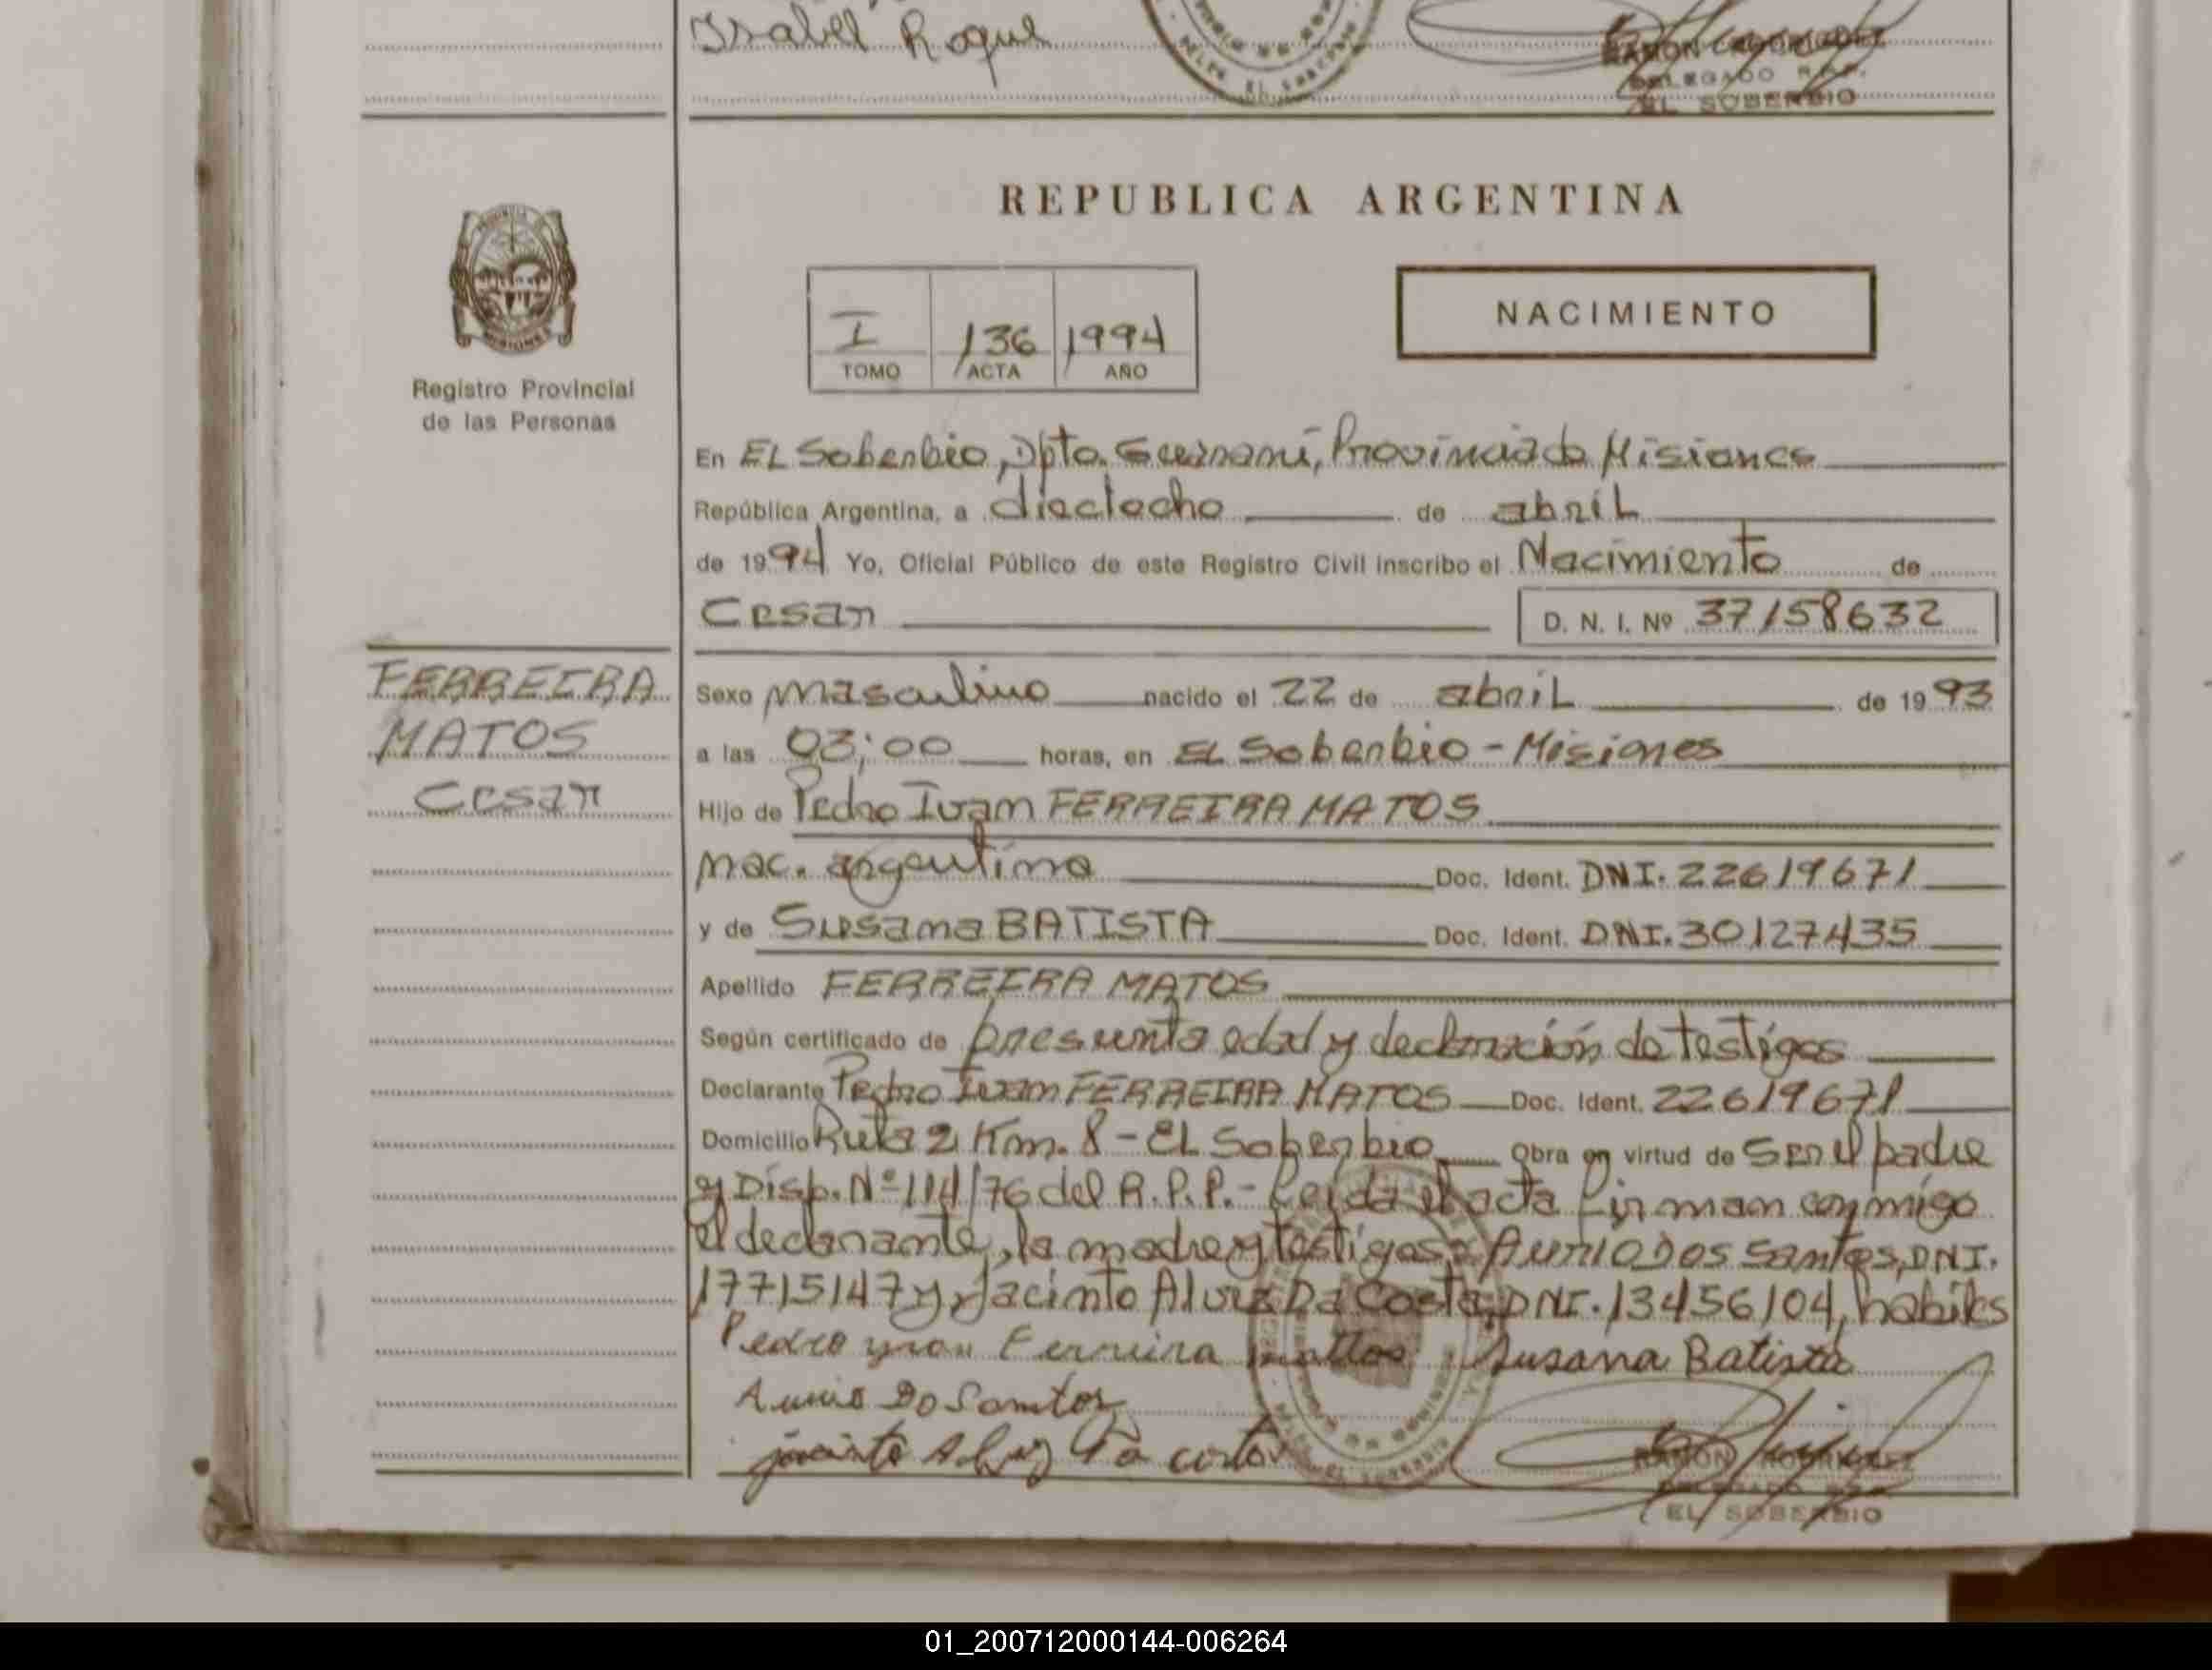 Isabel Roque
DELEGADO R.P.P.
EL SOBERBIO
REPUBLICA ARGENTINA
NACIMIENTO
I 136 1994
TOMO ACTA AÑO
Registro Provincial
de las Personas
En EL Soberbio, Dpto. Guaraní, Provincia de Misiones
República Argentina, a dieciocho de abril
de 1994 Yo, Oficial Público de este Registro Civil inscribo el Nacimiento de
Cesar D. N. I. Nº 37158632
FERREIRA
MATOS
Cesar
Sexo masculino nacido el 22 de abril de 1993
a las 03:00 horas, en EL Soberbio - Misiones
Hijo de Pedro Ivam FERREIRA MATOS
nac. argentina Doc. Ident. DNI. 22619671
y de Susana BATISTA Doc. Ident. DNI. 30127435
Apellido FERREIRA MATOS
Según certificado de presunta edad y declaración de testigos
Declarante Pedro Ivam FERREIRA MATOS Doc. Ident. 22619671
Domicilio Ruta 2 Km. 8 - EL Soberbio Obra en virtud de Ser el padre
y Disp. Nº 114/76 del R.P.P. - Leida el acta firman conmigo
el declarante, la madre y testigos: Aurio Dos Santos, DNI.
17715147 y Jacinto Alviz Da Costa, DNI. 13456104, habiles
Pedro yvan Ferreira mattos Susana Batista
Aurio Do Santos
jacinto Alviz Da costa
RAMON RODRIGUEZ
EL SOBERBIO
01_200712000144-006264